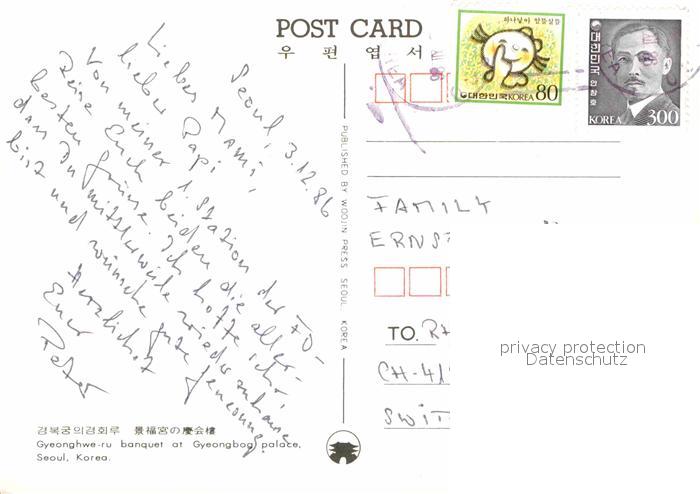 POST CARD
우편엽서
하나남이 알뜰살뜰
대한민국 KOREA 80
대한민국
안창호
KOREA 300
Seoul, 3.12.86
Liebes Mami,
lieber Papi
Von meiner 1. Station der FO-
Reise Euch beiden die aller-
besten Grüsse. Ich hoffe ich
dass Du mittlerweile wieder zuhause
bist und wünsche gute Genesung.
Herzlichst
Euer
Peter
PUBLISHED BY WOOJIN PRESS SEOUL KOREA
FAMILY
ERNST
TO.
CH-41
SWIT
privacy protection
Datenschutz
경복궁의경회루 景福宮の慶会楼
Gyeonghwe-ru banquet at Gyeongbog palace,
Seoul, Korea.